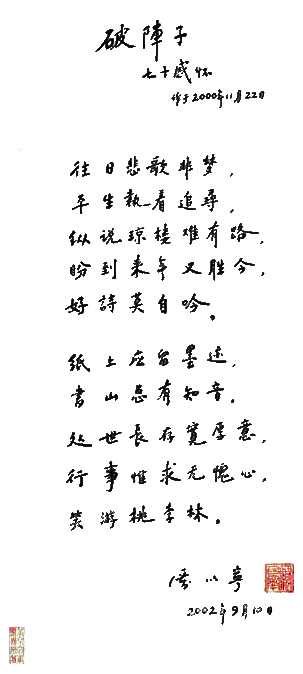 破陣子
七十感怀
作于2000年11月22日
往日悲歌非梦，
平生執着追尋，
纵说琼楼难有路，
盼到来年又胜今，
好詩莫自吟。
纸上应留墨迹，
書山总有知音。
处世長存寬厚意，
行事惟求无愧心，
笑游桃李林。
潘以宁
2002年9月10日